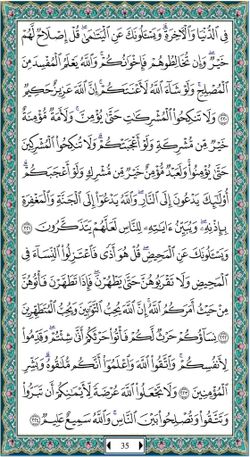 فِى ٱلدُّنْيَا وَٱلْـَٔاخِرَةِ ۗ وَيَسْـَٔلُونَكَ عَنِ ٱلْيَتَـٰمَىٰ ۖ قُلْ إِصْلَاحٌ لَّهُمْ
خَيْرٌ ۖ وَإِن تُخَالِطُوهُمْ فَإِخْوَٰنُكُمْ ۚ وَٱللَّهُ يَعْلَمُ ٱلْمُفْسِدَ مِنَ
ٱلْمُصْلِحِ ۚ وَلَوْ شَآءَ ٱللَّهُ لَأَعْنَتَكُمْ ۚ إِنَّ ٱللَّهَ عَزِيزٌ حَكِيمٌ
٢٢٠ وَلَا تَنكِحُوا۟ ٱلْمُشْرِكَـٰتِ حَتَّىٰ يُؤْمِنَّ ۚ وَلَأَمَةٌ مُّؤْمِنَةٌ
خَيْرٌ مِّن مُّشْرِكَةٍ وَلَوْ أَعْجَبَتْكُمْ ۗ وَلَا تُنكِحُوا۟ ٱلْمُشْرِكِينَ
حَتَّىٰ يُؤْمِنُوا۟ ۚ وَلَعَبْدٌ مُّؤْمِنٌ خَيْرٌ مِّن مُّشْرِكٍ وَلَوْ أَعْجَبَكُمْ ۗ
أُو۟لَـٰٓئِكَ يَدْعُونَ إِلَى ٱلنَّارِ ۖ وَٱللَّهُ يَدْعُوٓا۟ إِلَى ٱلْجَنَّةِ وَٱلْمَغْفِرَةِ
بِإِذْنِهِۦ ۖ وَيُبَيِّنُ ءَايَـٰتِهِۦ لِلنَّاسِ لَعَلَّهُمْ يَتَذَكَّرُونَ ٢٢١
وَيَسْـَٔلُونَكَ عَنِ ٱلْمَحِيضِ ۖ قُلْ هُوَ أَذًى فَٱعْتَزِلُوا۟ ٱلنِّسَآءَ فِى
ٱلْمَحِيضِ ۖ وَلَا تَقْرَبُوهُنَّ حَتَّىٰ يَطْهُرْنَ ۖ فَإِذَا تَطَهَّرْنَ فَأْتُوهُنَّ
مِنْ حَيْثُ أَمَرَكُمُ ٱللَّهُ ۚ إِنَّ ٱللَّهَ يُحِبُّ ٱلتَّوَّٰبِينَ وَيُحِبُّ ٱلْمُتَطَهِّرِينَ
٢٢٢ نِسَآؤُكُمْ حَرْثٌ لَّكُمْ فَأْتُوا۟ حَرْثَكُمْ أَنَّىٰ شِئْتُمْ ۖ وَقَدِّمُوا۟
لِأَنفُسِكُمْ ۚ وَٱتَّقُوا۟ ٱللَّهَ وَٱعْلَمُوٓا۟ أَنَّكُم مُّلَـٰقُوهُ ۗ وَبَشِّرِ
ٱلْمُؤْمِنِينَ ٢٢٣ وَلَا تَجْعَلُوا۟ ٱللَّهَ عُرْضَةً لِّأَيْمَـٰنِكُمْ أَن تَبَرُّوا۟
وَتَتَّقُوا۟ وَتُصْلِحُوا۟ بَيْنَ ٱلنَّاسِ ۗ وَٱللَّهُ سَمِيعٌ عَلِيمٌ ٢٢٤
35